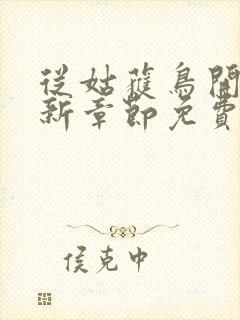 從姑蓷鳥開
新章節免費
侯克中